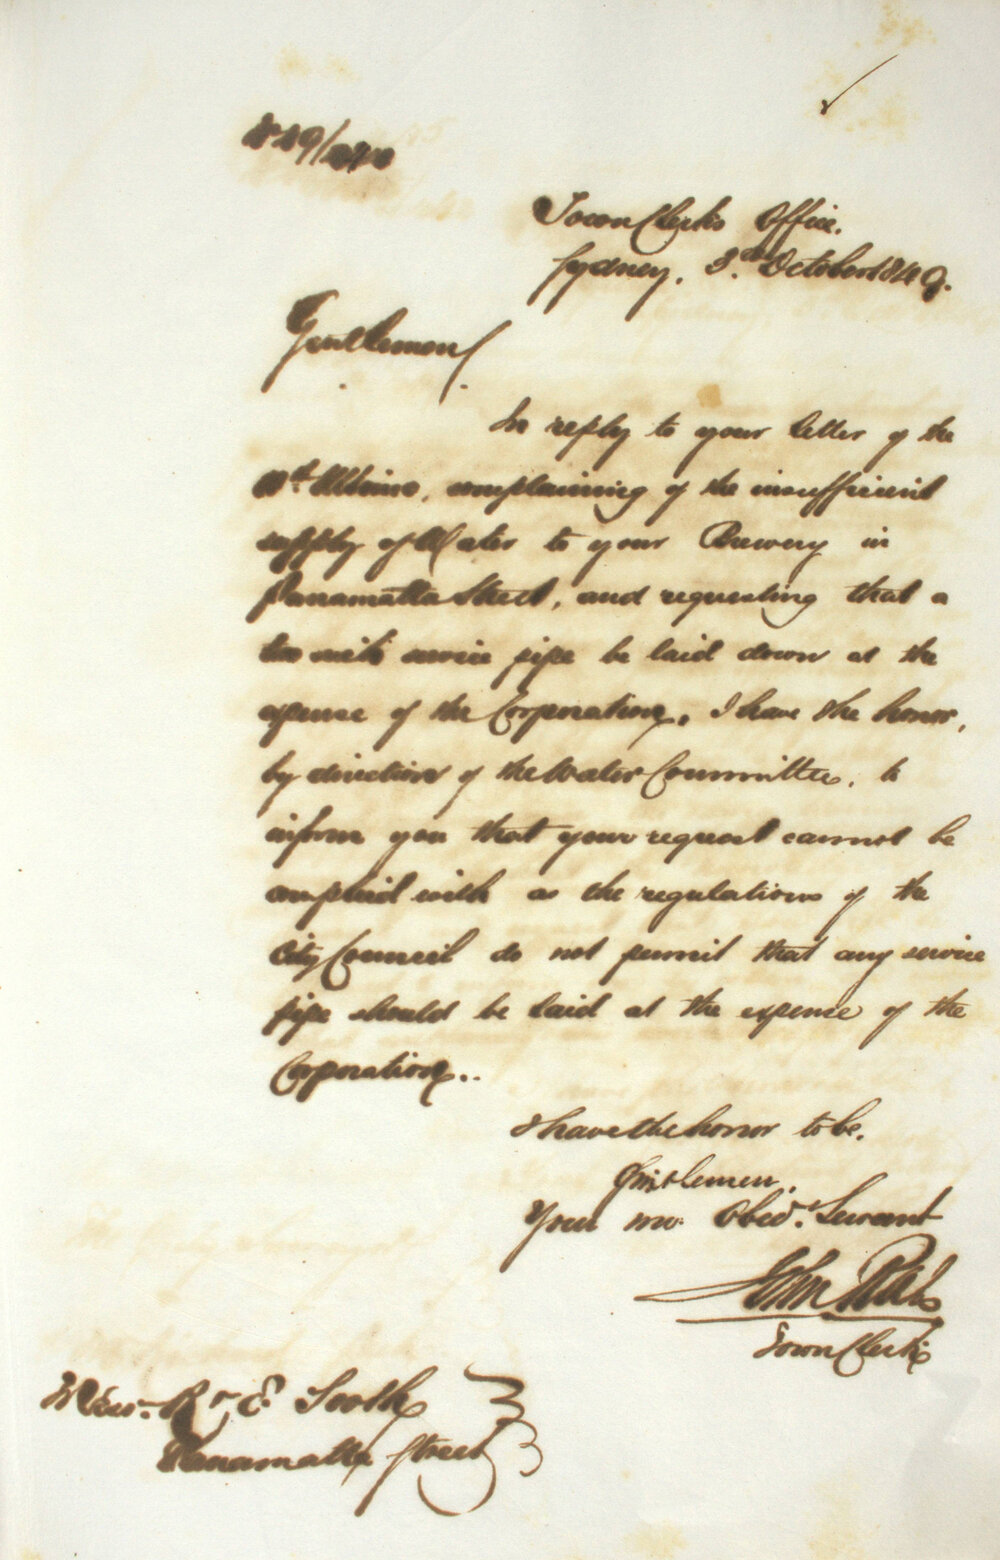 Town Clerk's Office.
Sydney, 3rd October 1849.
Gentlemen,
In reply to your letter of the
Ultimo, complaining of the insufficient
supply of Water to your Brewery in
Parramatta Street, and requesting that a
two inch service pipe be laid down at the
expense of the Corporation, I have the honor,
by direction of the Water Committee, to
inform you that your request cannot be
complied with as the regulations of the
City Council do not permit that any service
pipe should be laid at the expense of the
Corporation..
I have the honor to be,
Gentlemen,
Your mo. Obed. Servant
John
Town Clerk
Messrs. R & E
Parramatta Street